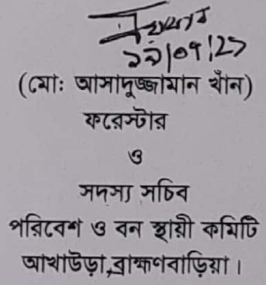 (মোঃ আসাদুজ্জামান খাঁন)
ফরেস্টার
ও
সদস্য সচিব
পরিবেশ ও বন স্থায়ী কমিটি
আখাউড়া,ব্রাহ্মণবাড়িয়া।